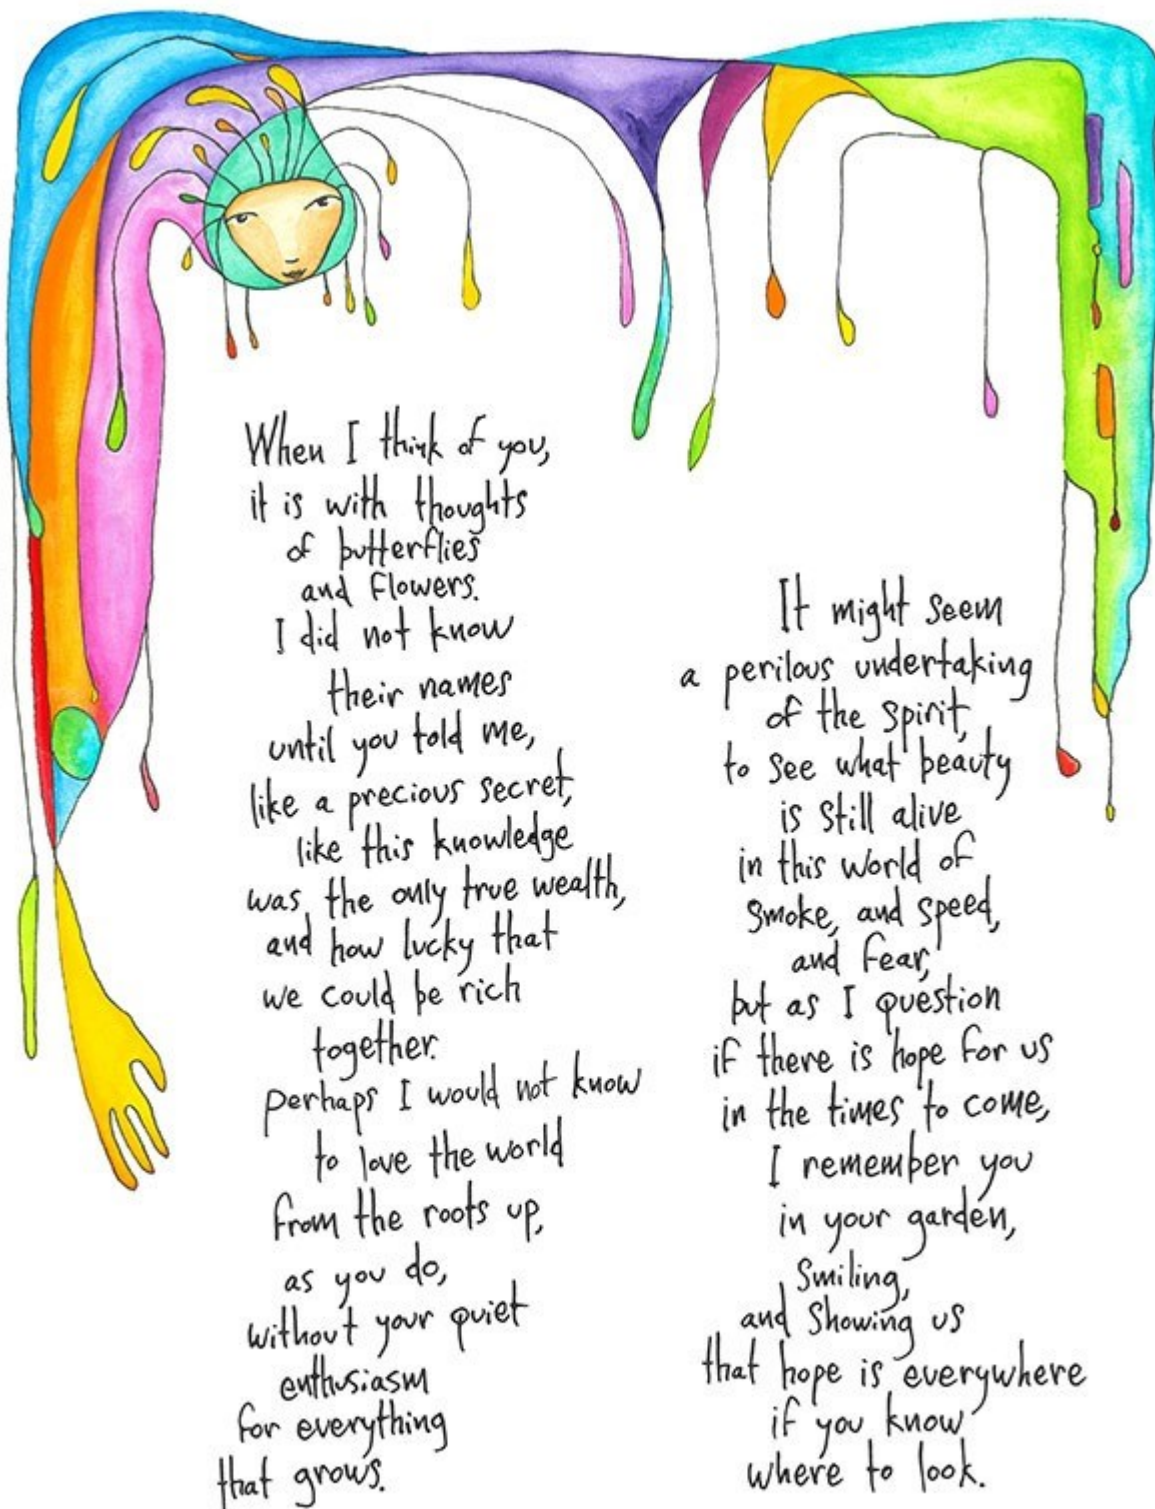 When I think of you,
it is with thoughts
of butterflies
and flowers.
I did not know
their names
until you told me,
like a precious secret,
like this knowledge
was the only true wealth,
and how lucky that
we could be rich
together.
perhaps I would not know
to love the world
from the roots up,
as you do,
without your quiet
enthusiasm
for everything
that grows.
It might seem
a perilous undertaking
of the spirit,
to see what beauty
is still alive
in this world of
smoke, and speed,
and fear,
but as I question
if there is hope for us
in the times to come,
I remember you
in your garden,
smiling,
and showing us
that hope is everywhere
if you know
where to look.